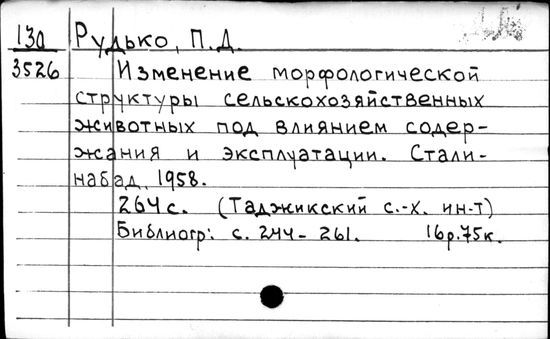 13а Рудько, П.Д.
3526 Изменение морфологической
структуры сельскохозяйственных
животных под влиянием содер-
жания и эксплуатации. Стали-
набад, 1958.
264 с. (Таджикский с.-х. ин-т)
Библиогр: с. 244-261. 16р.75к.